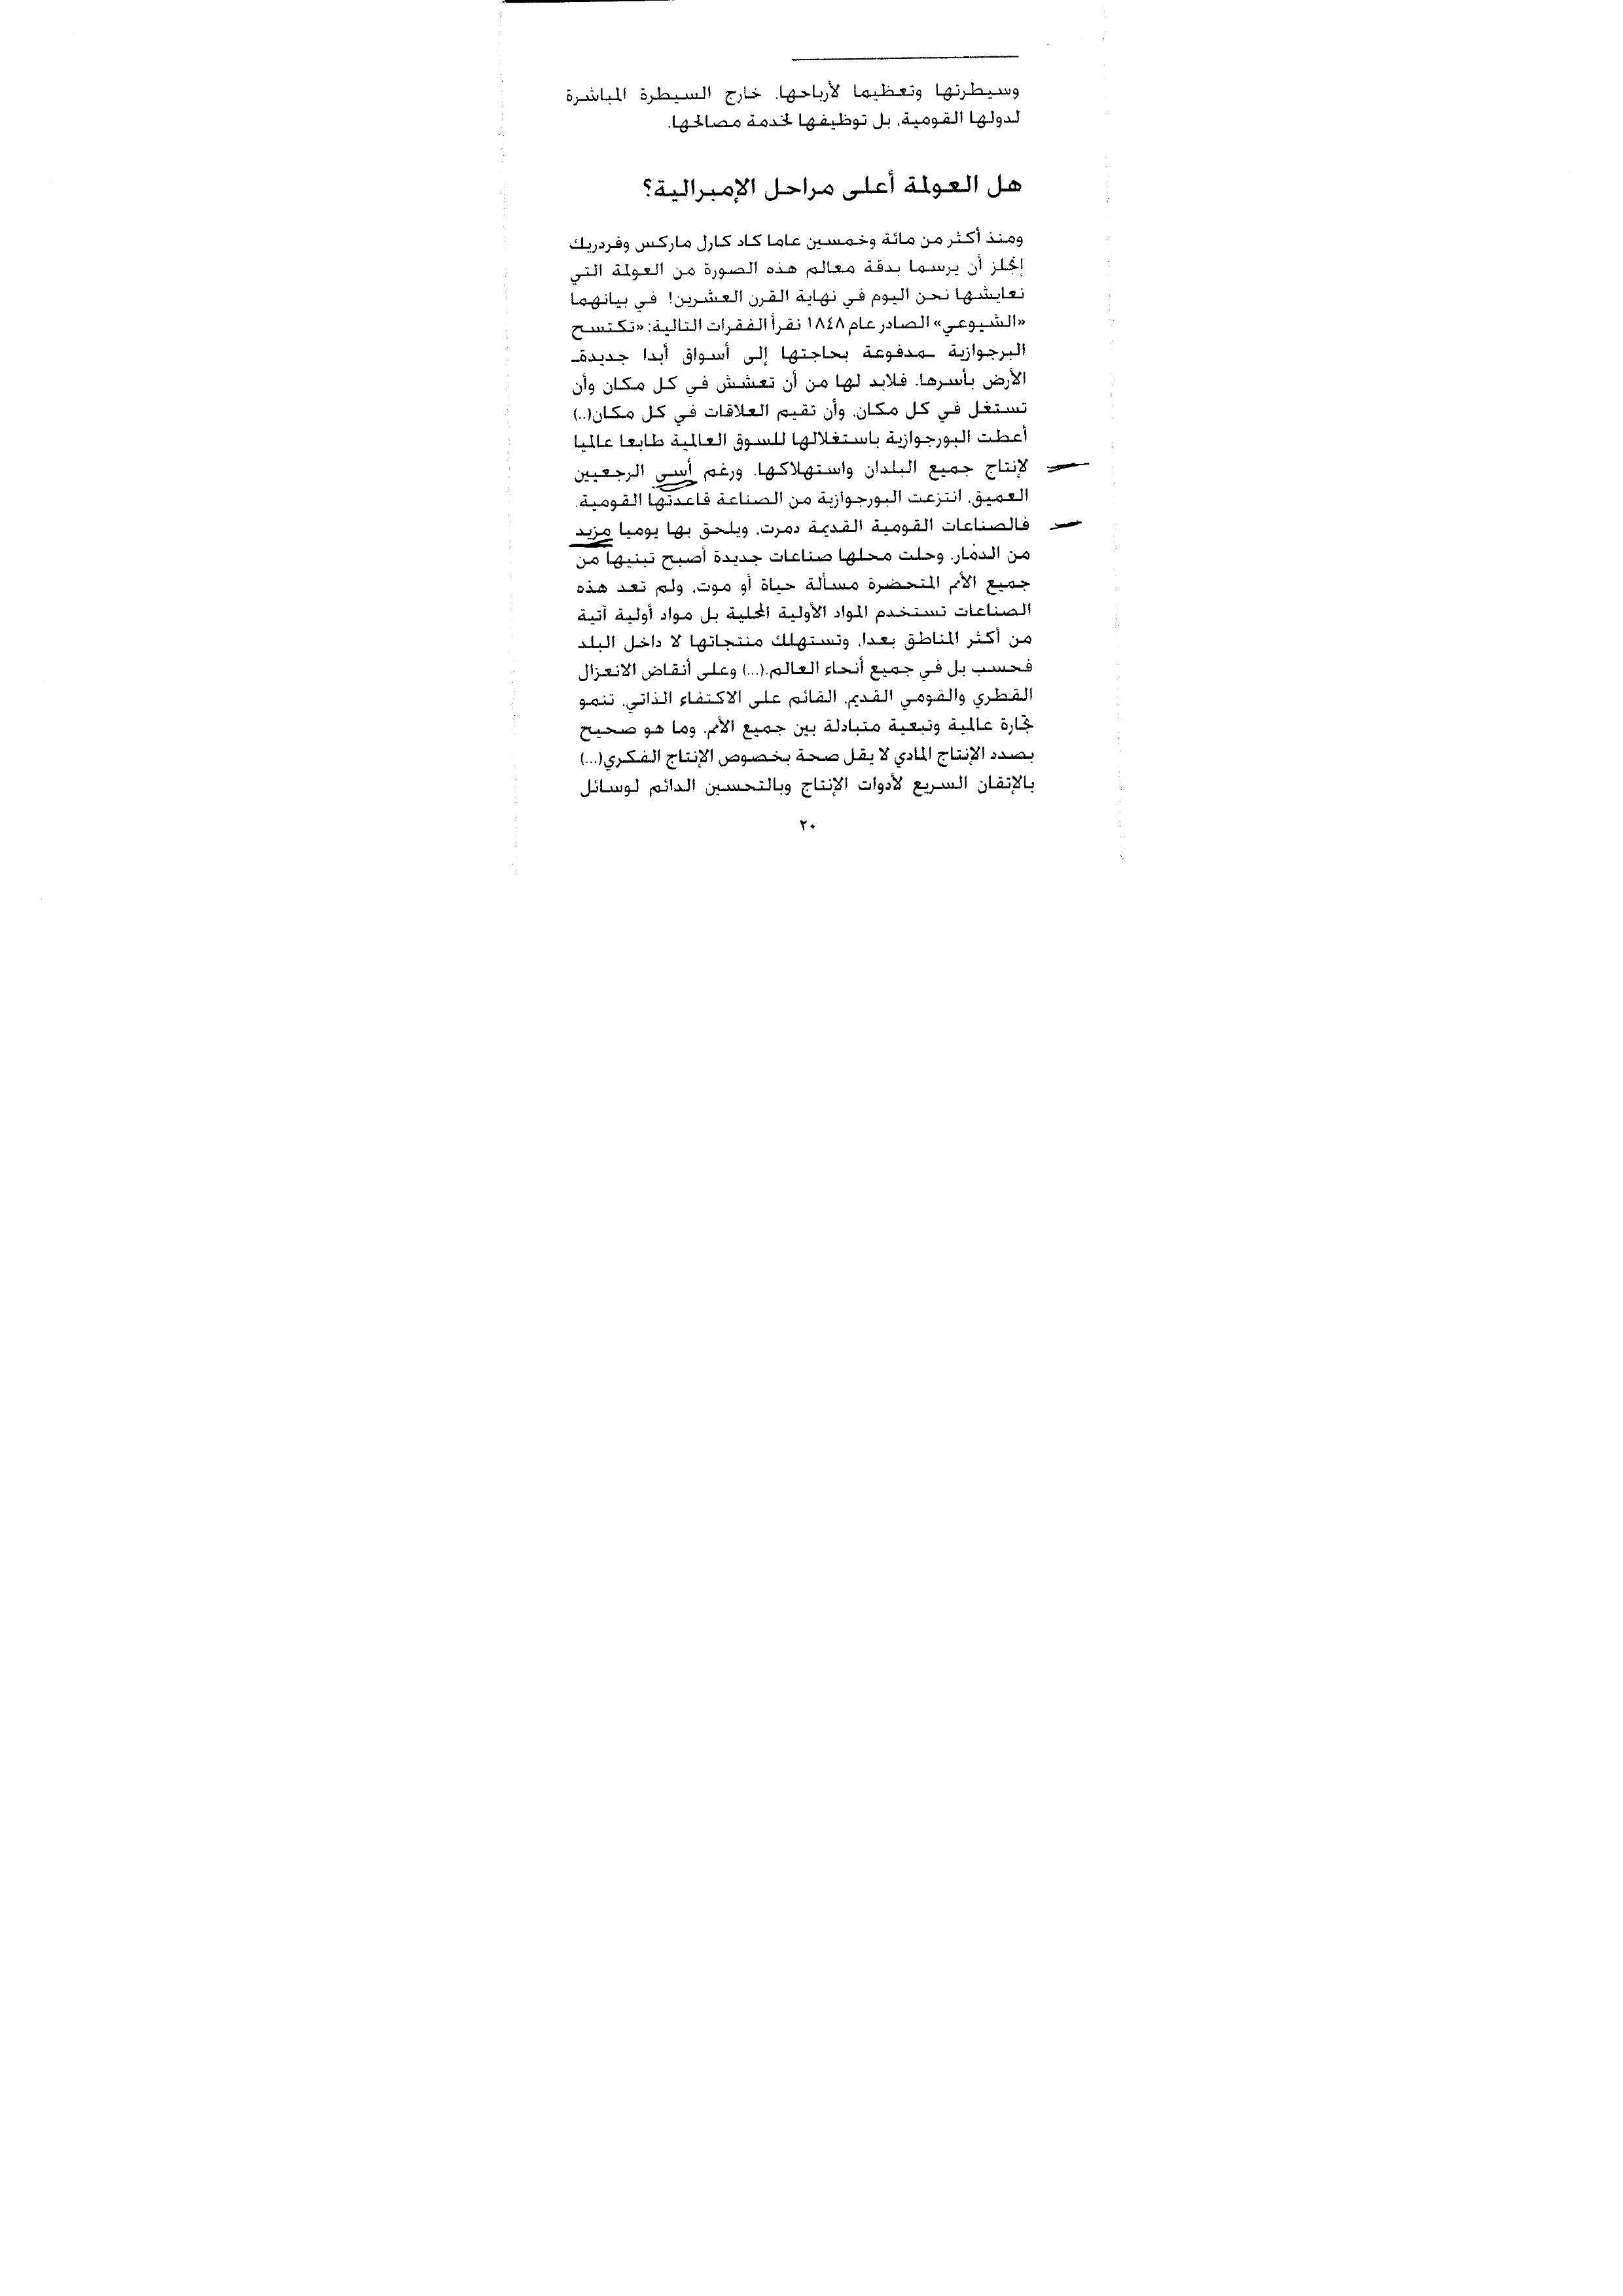 وسيطرتها وتعظيما لأرباحها، خارج السيطرة المباشرة
لدولها القومية، بل توظيفها لخدمة مصالحها.
هل العولمة أعلى مراحل الإمبرالية؟
ومنذ أكثر من مائة وخمسين عاما كاد كارل ماركس وفردريك
إنجلز أن يرسما بدقة معالم هذه الصورة من العولمة التي
نعايشها نحن اليوم في نهاية القرن العشرين! في بيانهما
«الشيوعي» الصادر عام ١٨٤٨ نقرأ الفقرات التالية: «تكتسح
البرجوازية ـمدفوعة بحاجتها إلى أسواق أبدا جديدةـ
الأرض بأسرها. فلابد لها من أن تعشش في كل مكان وأن
تستغل في كل مكان، وأن تقيم العلاقات في كل مكان(..)
أعطت البورجوازية باستغلالها للسوق العالمية طابعا عالميا
لإنتاج جميع البلدان واستهلاكها. ورغم أسى الرجعيين
العميق، انتزعت البورجوازية من الصناعة قاعدتها القومية.
فالصناعات القومية القديمة دمرت، ويلحق بها يوميا مزيد
من الدمار. وحلت محلها صناعات جديدة أصبح تبنيها من
جميع الأمم المتحضرة مسألة حياة أو موت، ولم تعد هذه
الصناعات تستخدم المواد الأولية المحلية بل مواد أولية آتية
من أكثر المناطق بعدا، وتستهلك منتجاتها لا داخل البلد
فحسب بل في جميع أنحاء العالم.(...) وعلى أنقاض الانعزال
القطري والقومي القديم، القائم على الاكتفاء الذاتي، تنمو
تجارة عالمية وتبعية متبادلة بين جميع الأمم. وما هو صحيح
بصدد الإنتاج المادي لا يقل صحة بخصوص الإنتاج الفكري(...)
بالإتقان السريع لأدوات الإنتاج وبالتحسين الدائم لوسائل
٢٠